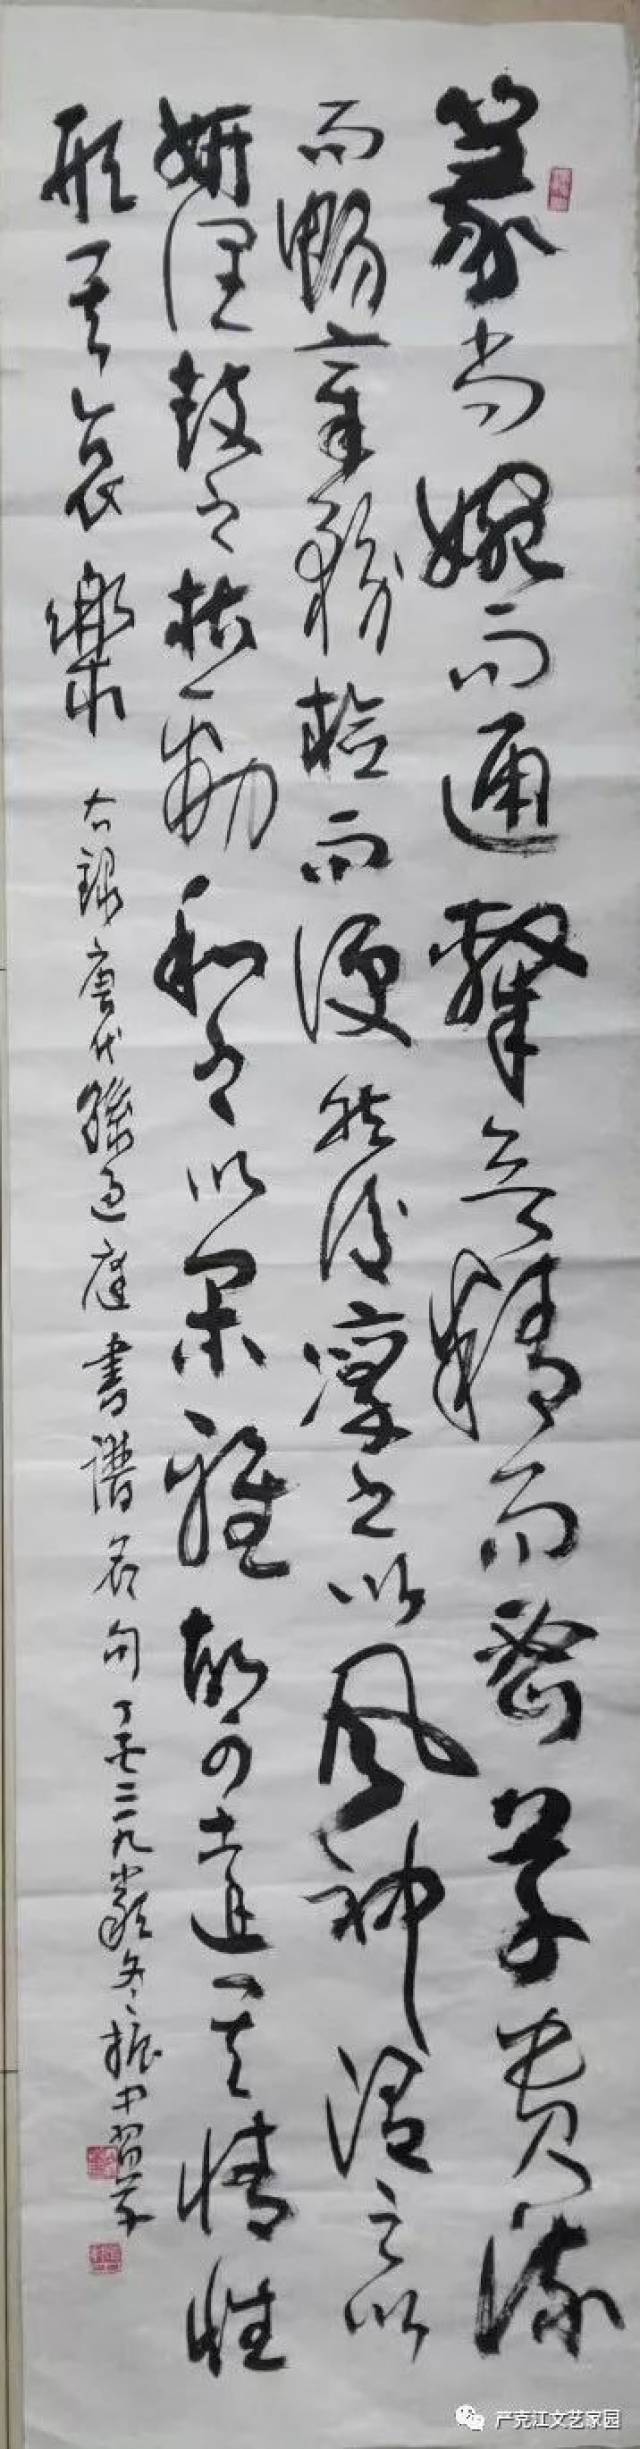 篆尚婉而通隸欲精而密草貴流
而暢章務檢而便然後凜之以风神溫之以
妍潤鼓之枯勁和之以閑雅故可達其情性
形其哀樂
右録唐代孫過庭書譜名句 冬振中習字
严克江文艺家园